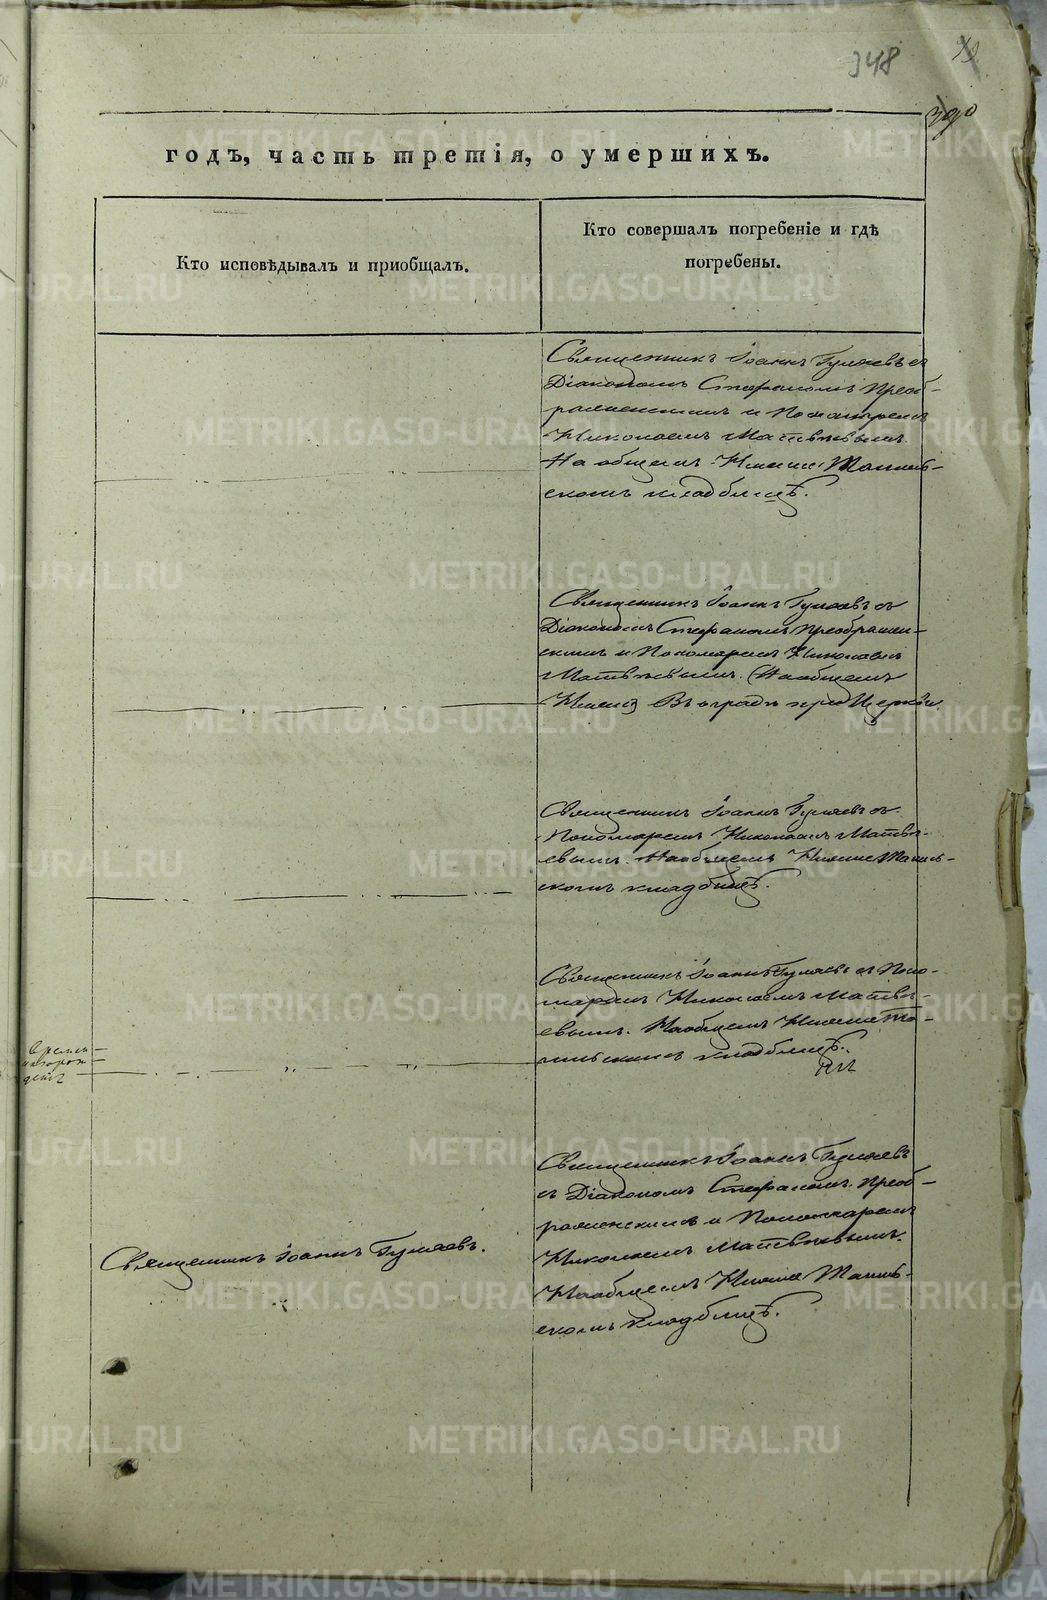 348
390
годъ, часть третія, о умершихъ.
Кто исповѣдывалъ и приобщалъ.
Кто совершалъ погребеніе и гдѣ
погребены.
Священникъ Іоаннъ Гуляевъ съ
Діакономъ Стефаномъ Преоб-
раженскимъ и Пономаремъ
Николаемъ Матвѣевымъ.
На общемъ Нижне Тагиль-
скомъ кладбищѣ.
Священникъ Іоаннъ Гуляевъ съ
Діакономъ Стефаномъ Преображен-
скимъ и Пономаремъ Николаемъ
Матвѣевымъ. (На общемъ
Нижне) Въ оградѣ при Церкви.
Священникъ Іоаннъ Гуляевъ съ
Пономаремъ Николаемъ Матвѣ-
евымъ. На общемъ Нижне Тагиль-
скомъ кладбищѣ.
Священникъ Іоаннъ Гуляевъ съ Поно-
маремъ Николаемъ Матвѣ-
евымъ. На общемъ Нижне Та-
гильскомъ кладбищѣ.
Священникъ Іоаннъ Гуляевъ
съ Діакономъ Стефаномъ Преоб-
раженскимъ и Пономаремъ
Священникъ Іоаннъ Гуляевъ.
Николаемъ Матвѣевымъ.
На общемъ Нижне Тагиль-
скомъ кладбищѣ.
METRIKI.GASO-URAL.RU